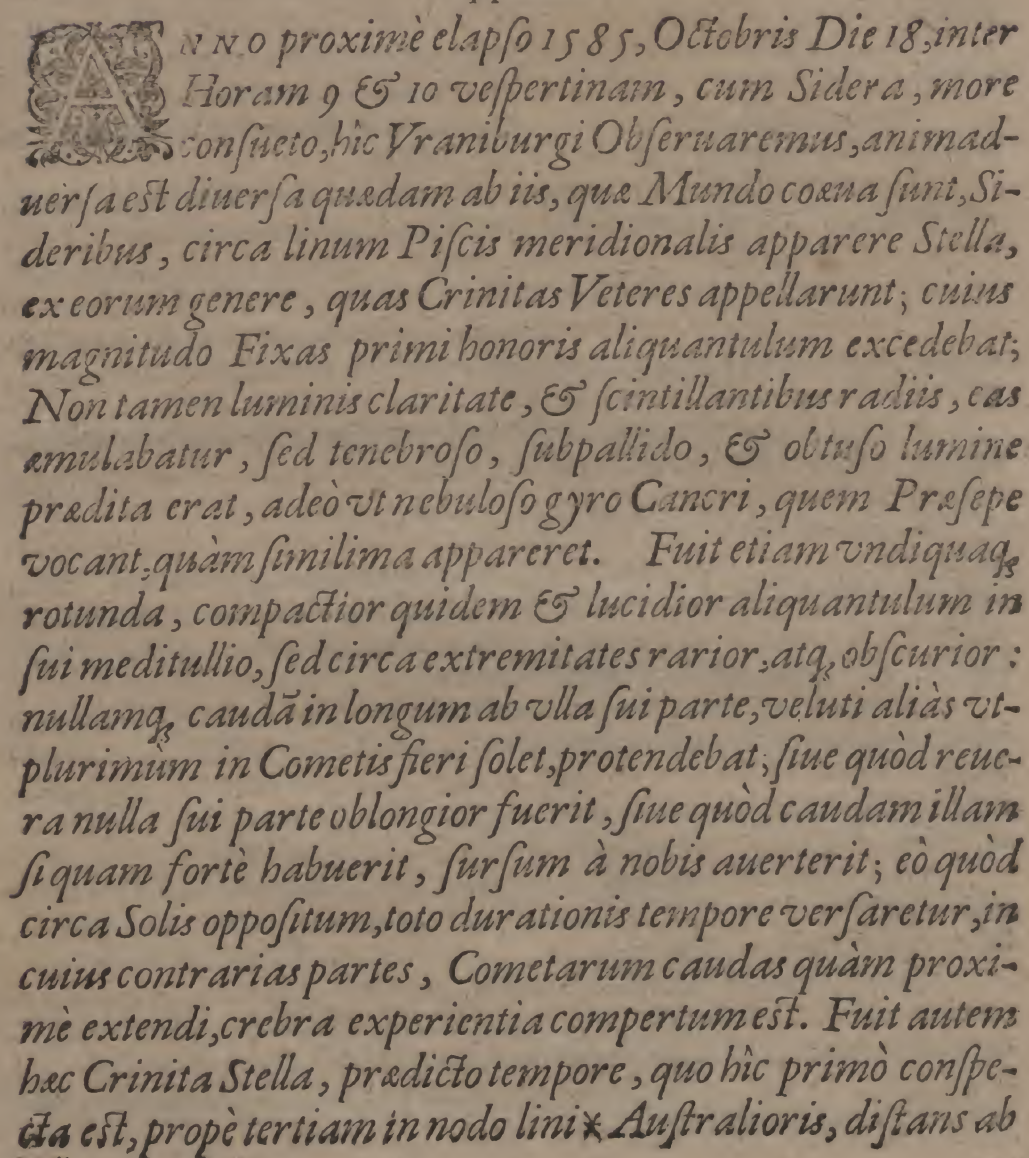 ANNO proximè elapſo 1585, Octobris Die 18, inter
Horam 9 & 10 veſpertinam, cum Sidera, more
conſueto, hîc Vraniburgi Obſeruaremus, animad-
uerſa eſt diuerſa quædam ab iis, quæ Mundo coæua ſunt, Si-
deribus, circa linum Piſcis meridionalis apparere Stella,
ex eorum genere, quas Crinitas Veteres appellarunt; cuius
magnitudo Fixas primi honoris aliquantulum excedebat;
Non tamen luminis claritate, & ſcintillantibus radiis, eas
æmulabatur, ſed tenebroſo, ſubpallido, & obtuſo lumine
prædita erat, adeò vt nebuloſo gyro Cancri, quem Præſepe
vocant, quàm ſimilima appareret. Fuit etiam vndiquaq;
rotunda, compactior quidem & lucidior aliquantulum in
ſui meditullio, ſed circa extremitates rarior, atq; obſcurior:
nullamq; caudā in longum ab vlla ſui parte, veluti aliàs vt-
plurimùm in Cometis fieri ſolet, protendebat; ſiue quòd reue-
ra nulla ſui parte oblongior fuerit, ſiue quòd caudam illam
ſi quam fortè habuerit, ſurſum à nobis auerterit; eò quòd
circa Solis oppoſitum, toto durationis tempore verſaretur, in
cuius contrarias partes, Cometarum caudas quàm proxi-
mè extendi, crebra experientia compertum eſt. Fuit autem
hæc Crinita Stella, prædicto tempore, quo hîc primò conſpe-
cta eſt, propè tertiam in nodo lini ♓ Auſtralioris, diſtans ab